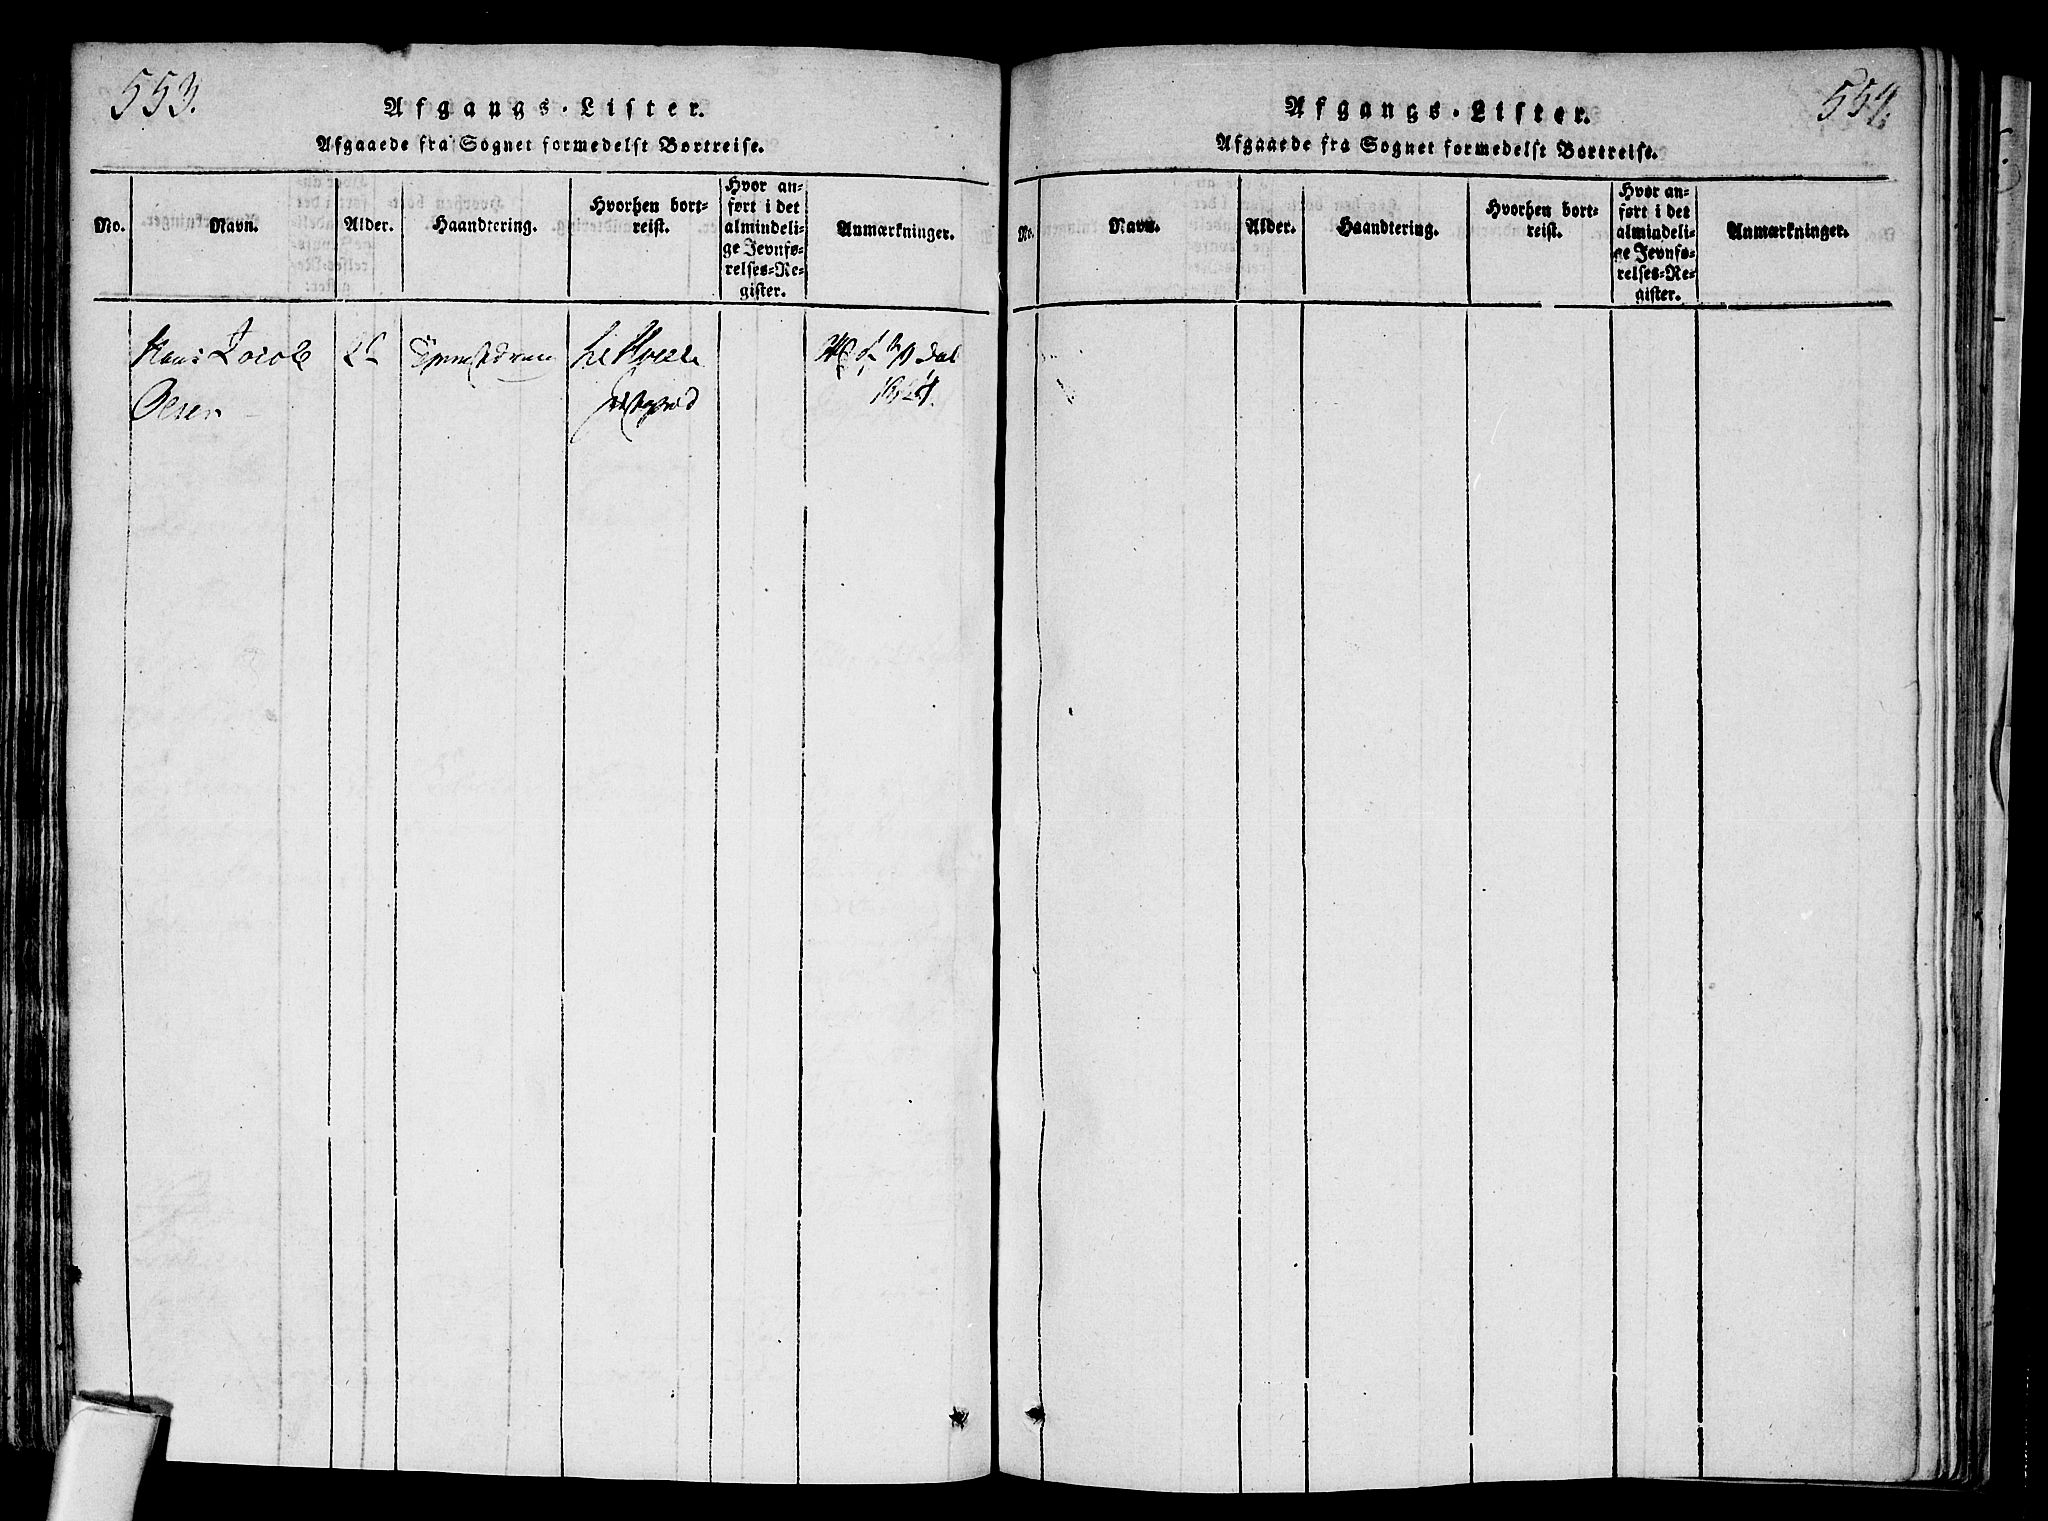 553.
Afgangs-Lister.
Afgaaede fra Sognet formedelst Bortreise.
No.
Navn.
Alder.
Haandtering.
Hvorhen bort-
reist.
Hvor an-
ført i det
almindeli-
ge Jevnfø-
relses-Re-
gister.
Anmærkninger.
Hans Jacob
Olsen
til Hvalse
554.
Afgangs-Lister.
Afgaaede fra Sognet formedelst Bortreise.
No.
Navn.
Alder.
Haandtering.
Hvorhen bort-
reist.
Hvor an-
ført i det
almindeli-
ge Jevnfø-
relses-Re-
gister.
Anmærkninger.